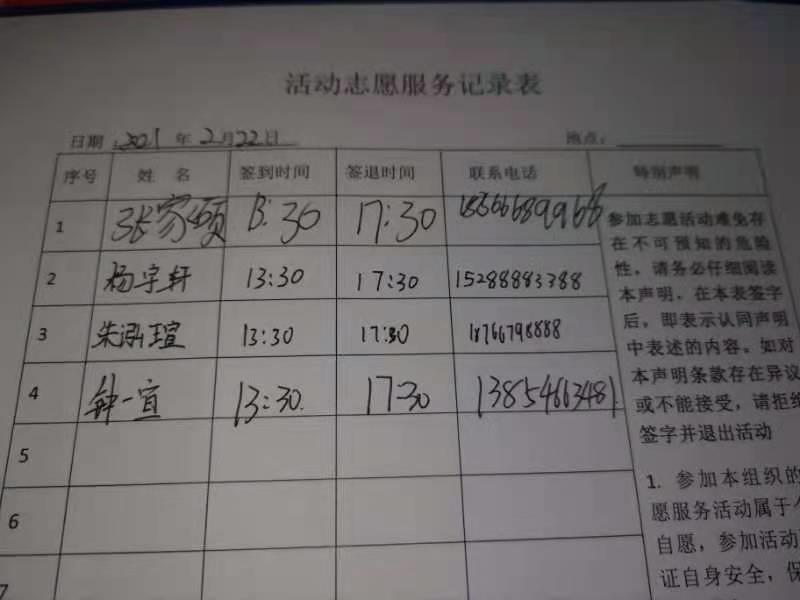 活动志愿服务记录表
日期:2021年2月22日 地点:
序号 姓 名 签到时间 签退时间 联系电话 特别声明
1 张家硕 13:30 17:30
2 杨宇轩 13:30 17:30 15288883388
3 朱泓瑄 13:30 17:30 18766798888
4 钟一宣 13:30. 17:30 13854663481
5
6
7
参加志愿活动难免存
在不可预知的危险
性,请务必仔细阅读
本声明,在本表签字
后,即表示认同声明
中表述的内容。如对
本声明条款存在异议
或不能接受,请拒绝
签字并退出活动
1. 参加本组织的
愿服务活动属于个
自愿,参加活动
证自身安全,保